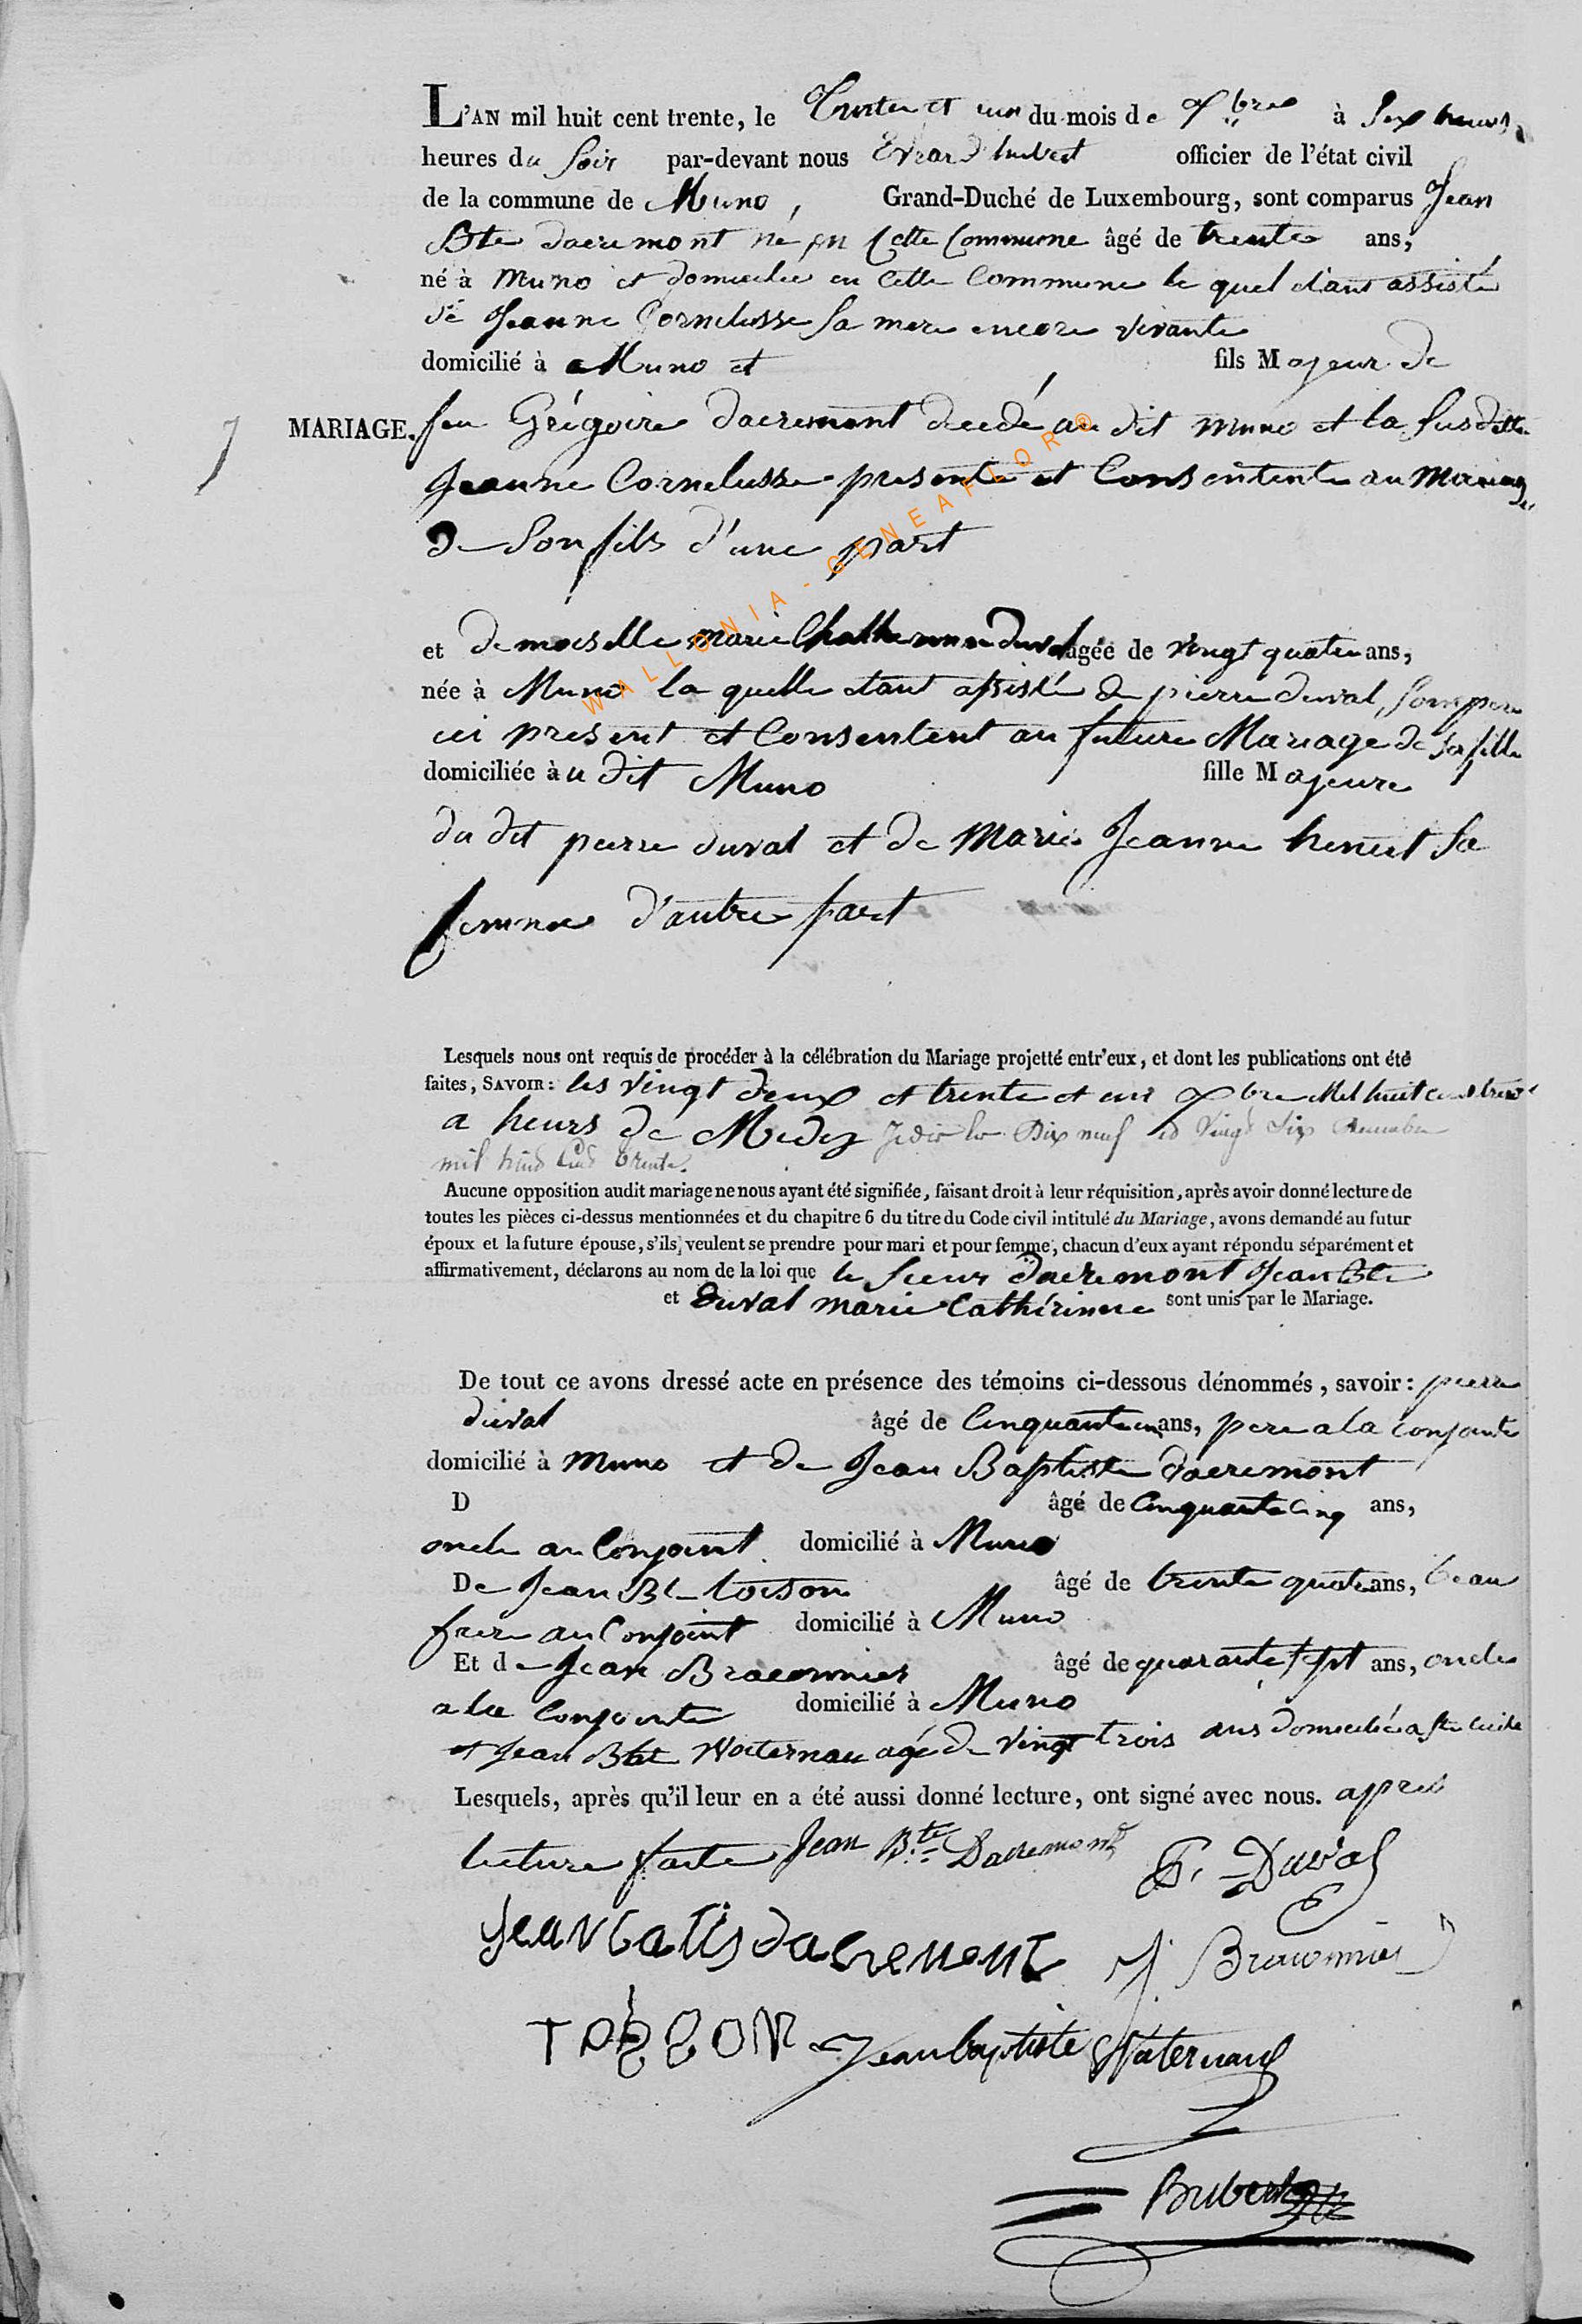 L'AN mil huit cent trente, le Trente et un du mois de Xbre à Six heures
heures du Soir par-devant nous Evrard hubert officier de l'état civil
de la commune de Muno, Grand-Duché de Luxembourg, sont comparus Jean
Bte dacremont né en Cette Commune âgé de trente ans,
né à Muno et domicilie en Cette Commune le quel etant assisté
de Jeanne Cornelusse Sa mere encore vivante
domicilié à Muno et fils Majeur de
7 MARIAGE. feu Grégoire dacremont decedé au dit Muno et la Susditte
Jeanne Cornelusse presente et Consentente au Mariage
de Son fils d'une part
et demoiselle Marie Chatherinne duval agée de Vingt quatre ans,
née à Muno la quelle etant assisté de pierre duval, Son pere
ici present et Consentent au future Mariage de sa fille
domiciliée àu dit Muno fille Majeure
du dit pierre duval et de Marie Jeanne Sa
femme d'autre part
Lesquels nous ont requis de procéder à la célébration du Mariage projetté entr'eux, et dont les publications ont été
faites, SAVOIR: les Vingt deux et trente et un Xbre Mil huit cent trente
a heurs de Midy Jedis le Dix neuf et Vingt Six Decembre
mil huit Cent trente.
Aucune opposition audit mariage ne nous ayant été signifiée, faisant droit à leur réquisition, après avoir donné lecture de
toutes les pièces ci-dessus mentionnées et du chapitre 6 du titre du Code civil intitulé du Mariage, avons demandé au futur
époux et la future épouse, s'ils veulent se prendre pour mari et pour femme, chacun d'eux ayant répondu séparément et
affirmativement, déclarons au nom de la loi que le Sieur dacremont Jean Bte
et duval marie Cathérinne sont unis par le Mariage.
De tout ce avons dressé acte en présence des témoins ci-dessous dénommés, savoir: pierre
duval âgé de Cinquante un ans, pere a la conjointe
domicilié à Muno et de Jean Baptiste dacremont
D âgé de Cinquante Cinq ans,
oncle au Conjoint domicilié à Muno
De Jean Bt toison âgé de trente quatre ans, beau
frere au Conjoint domicilié à Muno
Et de Jean Braconnier âgé de quarante sept ans, oncle
a la Conjointe domicilié à Muno
et Jean Bte Waternau agé de Vingt trois ans domicilié a Ste Cecile
Lesquels, après qu'il leur en a été aussi donné lecture, ont signé avec nous. apres
lecture faite Jean Bte Dacremont P. Duval
Jean batis dacremont J. Braconnier
Jean baptiste Waternaux
WALLONIA - GENEAFLOR ®